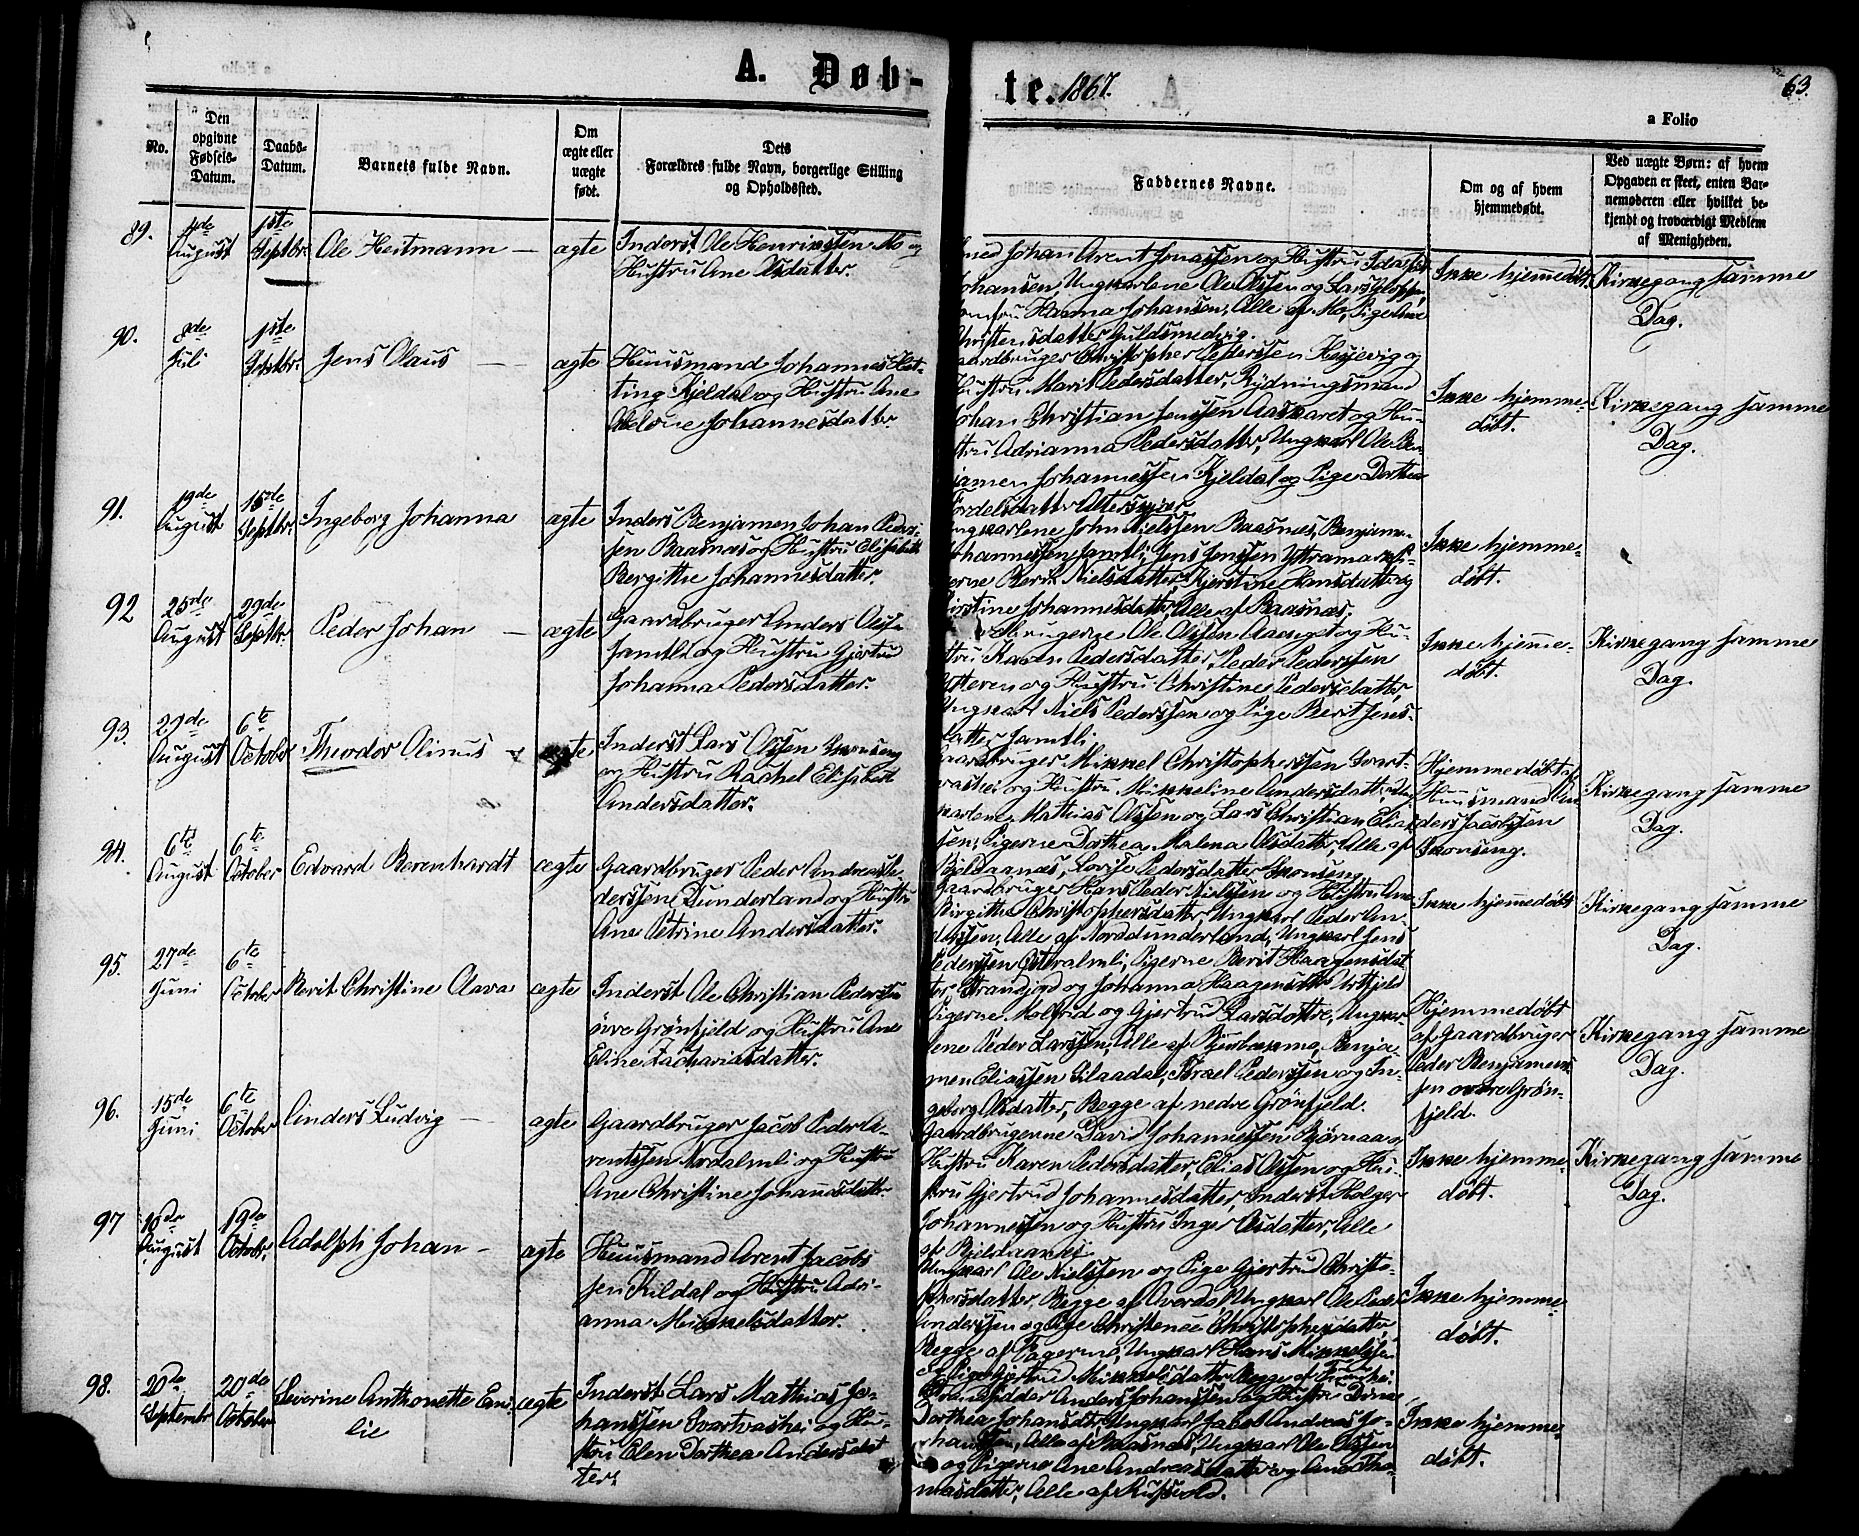 A. Døb-
te. 1867.
63.
a Folio
No.
Den
opgivne
Fødsels-
Datum.
Daabs-
Datum.
Barnets fulde Navn.
Om
ægte eller
uægte
født.
Dets
Forældres fulde Navn, borgerlige Stilling
og Opholdssted.
Faddernes Navne.
Om og af hvem
hjemmedøbt.
Ved uægte Børn: af hvem
Opgaven er skeet, enten Bar-
nemoderen eller hvilket be-
kjendt og troværdigt Medlem
af Menigheden.
89.
August
1ste
Septbr.
Ole Heitmann —
ægte
Inderst Ole Henrikssen Mo og
Hustru Ane Olsdatter.
Johan Arent Jonassen og Hustru
Johansen, Ungkarlene Ole Olssen og Lars
Hanna Johansen, Alle af Mo, Pige Ane
Christensdatter Guldsmedvig.
Ikke hjemmedøbt.
Kirkegang samme
Dag.
90.
8de
Juli
1ste
Septbr.
Jens Olaus —
ægte
Huusmand Johannes Het-
ting Kjeldal og Hustru Ane
Abelone Johannesdatter
Gaardbruger Christopher Pederssen Hesjevig og
Hustru Marit Pedersdatter, Rydningsmand
Johan Christian Jenssen Aaskaret og Hu-
stru Adrianna Pedersdatter, Ungkarl Ole Ben-
jamen Johannessen Kjeldal og Pige Dorthea
Ikke hjemme-
døbt.
Kirkegang samme
Dag.
91.
19de
August
15de
Septbr.
Ingeborg Johanna
ægte
Inderst Benjamen Johan Peder-
sen Baasnæs og Hustru Elisabeth
Bergitha Johannesdatter.
Ungkarlene John Nielssen Baasnæs, Benjamen
Johannessen Jamtli, Jens Jenssen Yttramark, Pi-
gerne Berit Nielsdatter, Kjerstine Hansdatter og
Kirstine Johannesdatter, Alle af Baasnæs.
Ikke hjemme-
døbt.
92
25de
August
29de
Septbr.
Peder Johan —
ægte
Gaardbruger Anders Olssen
Jamtli og Hustru Gjertrud
Johanna Pedersdatter.
Ole Olssen Aanget og Hu-
stru Karen Pedersdatter, Peder Pederssen
Ytteren og Hustru Christine Pedersdatter,
Ungkarl Niels Pederssen og Pige Berit Jens-
datter Jamtli.
Ikke hjemme-
døbt.
Kirkegang samme
Dag.
93.
29de
August
6te
October
Theodor Olinus —
ægte
Inderst Lars Olssen Skonseng
og Hustru Rachel Elisabeth
Andersdatter.
Gaardbruger Mikkel Christopherssen Svart-
vashei og Hustru Mikkeline Andersdatter, Ung-
karlene Mathias Olssen og Lars Christian Elias-
sen, Pigerne Dorthea Malena Olsdatter, Alle af
Bjeldaanæs, Lovise Pedersdatter Skonseng
Hjemmedøbt af
Huusmand An-
ders Jacobssen
Skonseng.
Kirkegang samme
Dag.
94.
6te
August
6te
October
Edvard Berenhardt
ægte
Gaardbruger Peder Andreas Pe-
derssen Dunderland og Hustru
Ane Petrine Andersdatter.
Gaardbruger Hans Peder Nielssen og Hustru Ane
Birgitha Christophersdatter, Ungkarl Peder An-
derssen, Alle af Norddunderland, Ungkarl Jens
Pederssen Østeralmli, Pigerne Berit Haagensdat-
ter Strandjord og Johanna Haagensdatter
Ikke hjemmedøbt
Kirkegang samme
Dag.
95.
27de
Juni
6te
October
Berit Christine Olava
ægte
Inderst Ole Christian Pederssen
øvre Grønfjeld og Hustru Ane
Eline Zachariasdatter.
Pigerne Molfrid og Gjertrud Larsdøttre, Ungkar-
lene Peder Larssen, Alle af Bjerkemo, Benja-
men Eliassen Gilaadal, Israel Pederssen og In-
geborg Olsdatter, Begge af nedre Grønfjeld.
Hjemmedøbt
af Gaardbruger
Peder Benjamens-
sen øvre Grøn-
fjeld.
Kirkegang samme
Dag.
96.
15de
Juni
6te
October
Anders Ludvig —
ægte
Gaardbruger Jacob Peder A-
rentssen Nordalmli og Hustru
Ane Christine Johannesdatter.
Gaardbrugerne David Johannessen Bjørnaa og
Hustru Karen Pedersdatter, Elias Olssen og Hu-
stru Gjertrud Johannesdatter, Inderst Holger
Johannessen og Hustru Inger Olsdatter, Alle
af Bjeldaanæs
Ikke hjemme-
døbt.
Kirkegang samme
Dag.
97
18de
August
19de
October
Adolph Johan —
ægte
Huusmand Arent Jacobs-
sen Kildal og Hustru Adri-
anna Mikkelsdatter.
Ungkarl Ole Nielssen og Pige Gjertrud Christo-
phersdatter, Begge af Averdal, Ungkarl Ole Peder
Anderssen og Pige Christence Christophersdatter,
Begge af Fagermo, Ungkarl Hans Mikkelssen
og Pige Gjertrud Mikkelsdatter, Begge af
Ikke hjemme-
døbt.
98.
20de
Septembr
20de
October
Severine Anthonette Emi-
lie
ægte
Inderst Lars Mathias Jo-
hanssen Svartvashei og Hu-
stru Elen Dorthea Andersdat-
ter.
Anders Johanssen og Hustru
Dorthea Johansdtr, Ungkarl Jacob Andreas Jo-
hanssen, Alle af Baasnæs, Ungkarl Ole Olssen
og Pigerne Ane Andreasdatter og Ane Tho-
masdatter, Alle af Rusvold.
Ikke hjemme-
døbt.